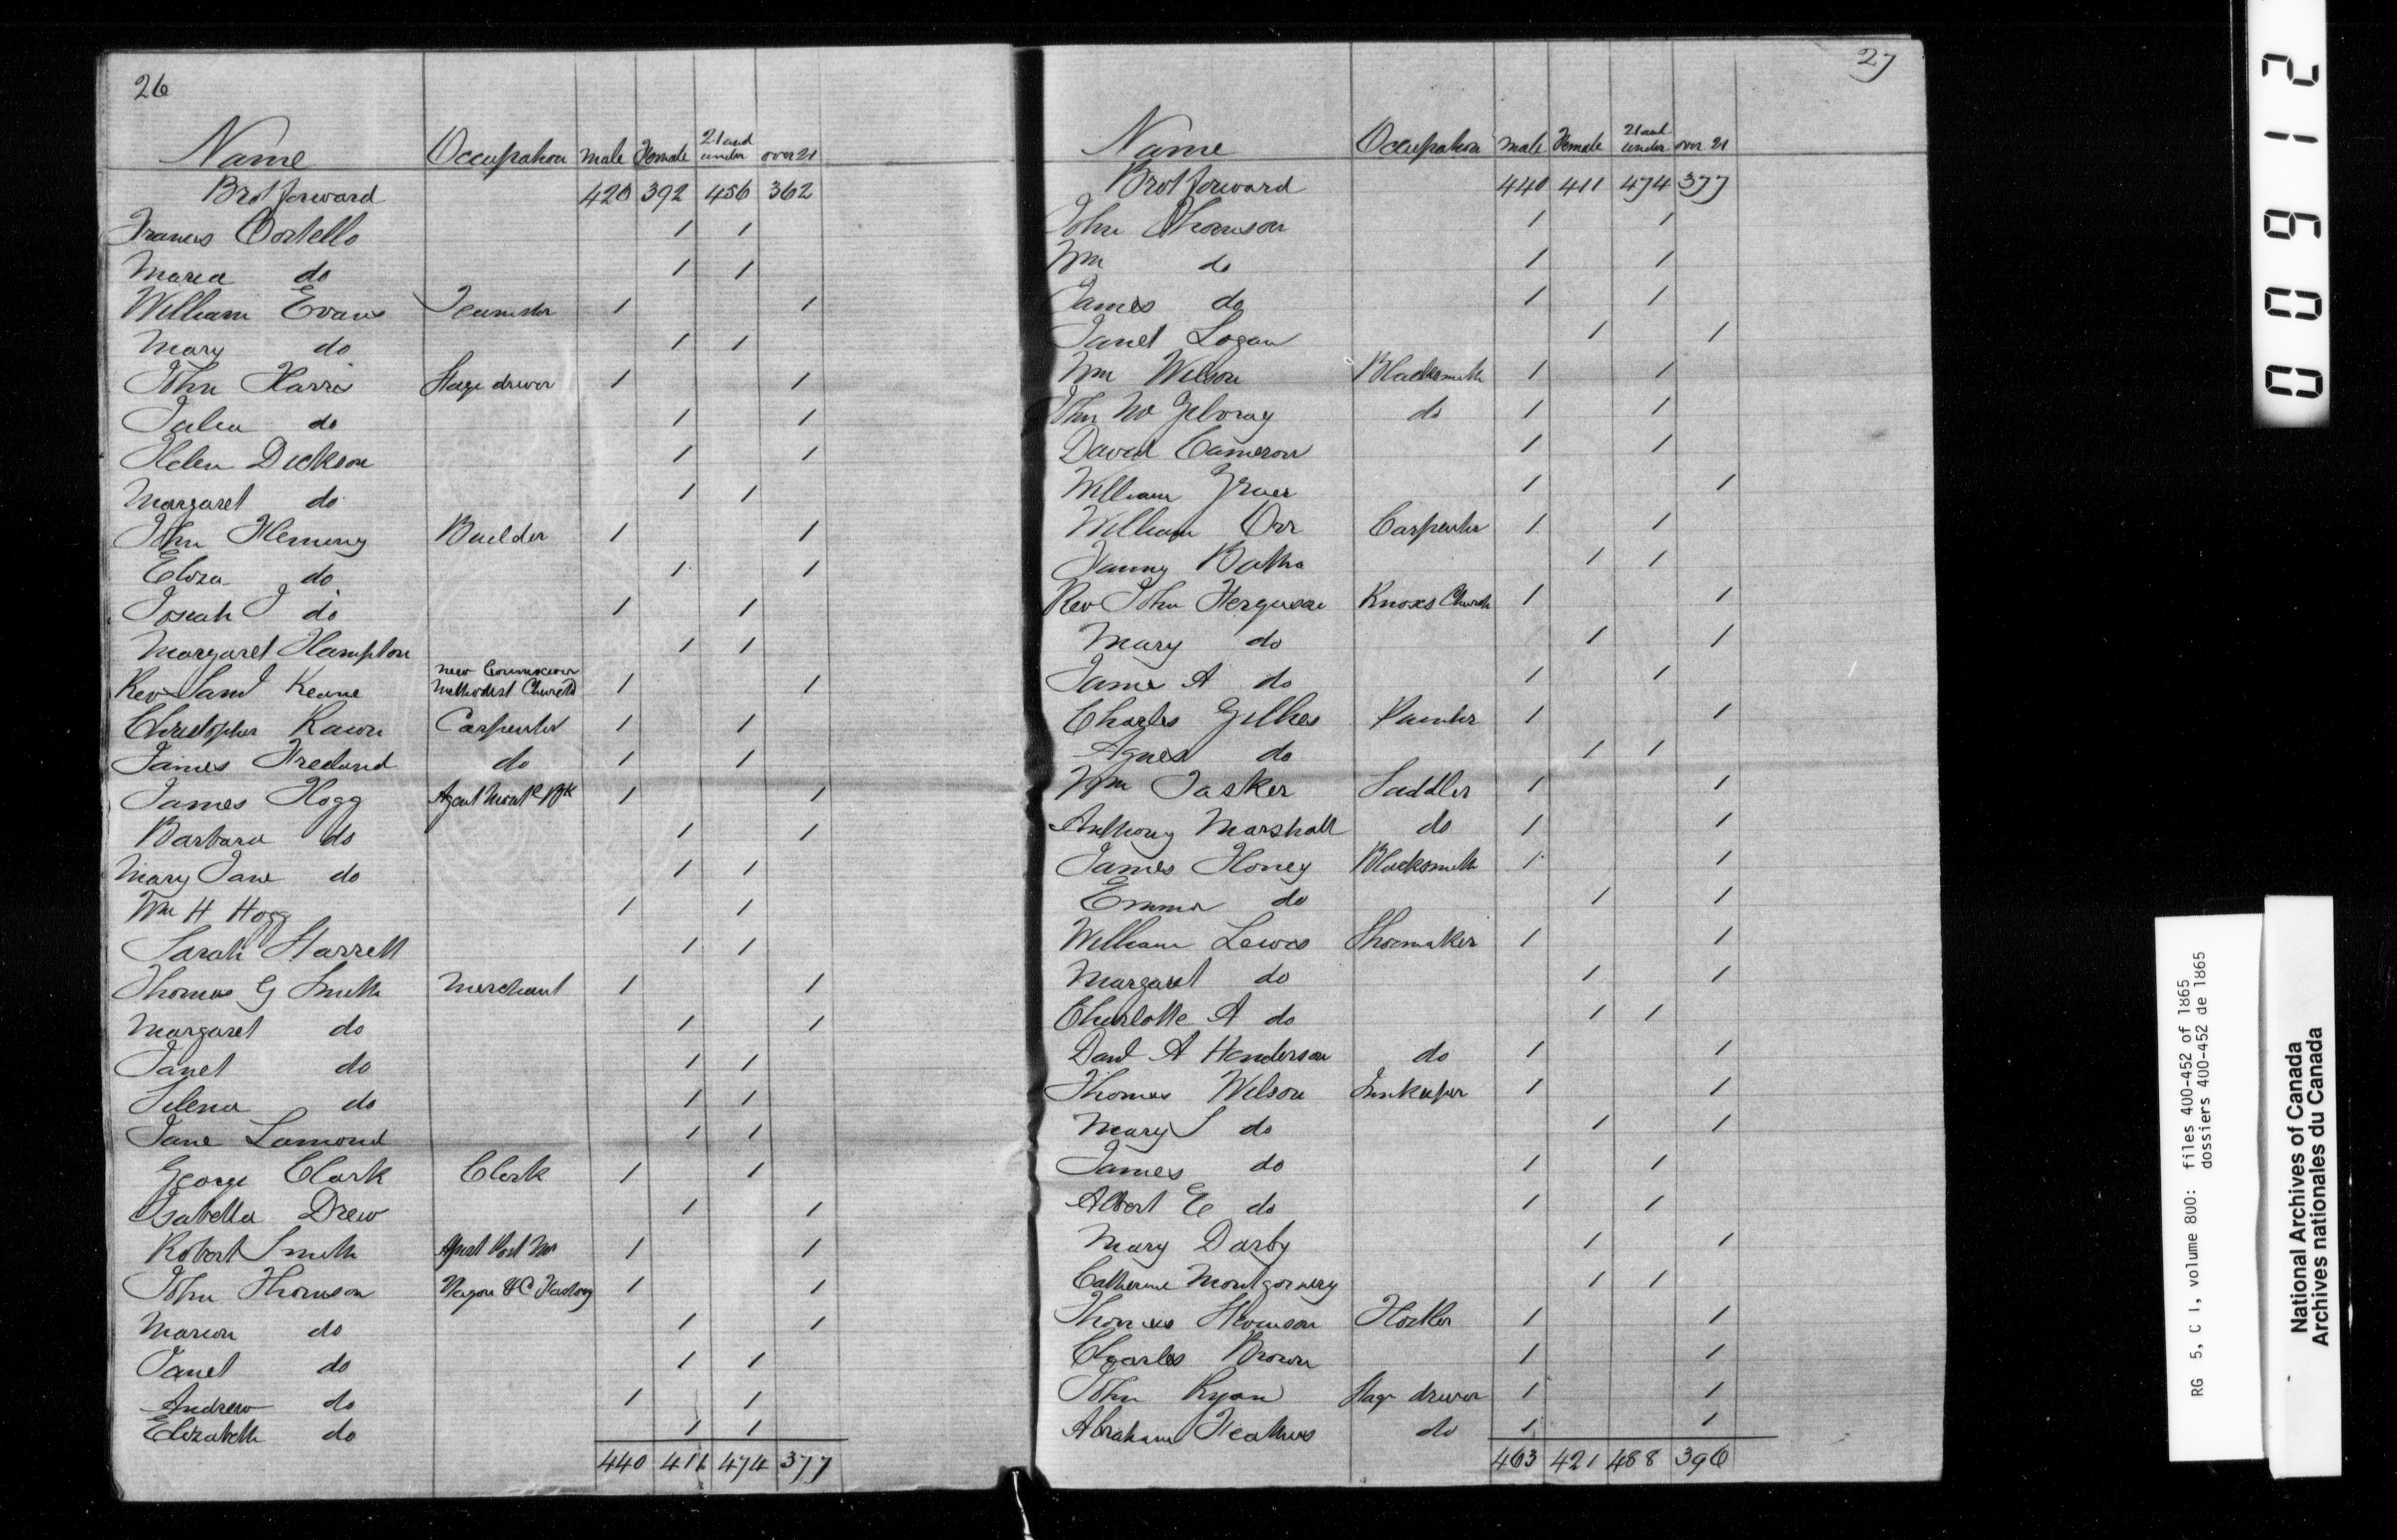 26
Name Occupation male Female 21 and under over 21
Brot forward 426 392 456 362
Frances Costello 1 1
Maria do 1 1
William Evans Teamster 1 1
Mary do 1 1
John Harris Stage driver 1 1
Julia do 1 1
Helen Dickson 1 1
Margaret do 1 1
John Fleming Builder 1 1
Eliza do 1 1
Josiah J do 1 1
Margaret Hampton 1 1
Rev Saml Keane New Connexion Methodist Church 1 1
Christopher Carpenter 1 1
James Freeland do 1 1
James Hogg Agent Montl Bk 1 1
Barbara do 1 1
Mary Jane do 1 1
Wm H Hogg 1 1
Sarah Starrett 1 1
Thomas G Smith Merchant 1 1
Margaret do 1 1
Janet do 1 1
Selena do 1 1
Jane Lamond 1 1
George Clark Clerk 1 1
Isabella Drew 1 1
Robert Smith Asst Post Mr 1 1
John Thomson Wagon &C Factory 1 1
Marion do 1 1
Janet do 1 1
Andrew do 1 1
Elizabeth do 1 1
440 411 474 377
27
Name Occupation male Female 21 and under over 21
Brot forward 440 411 474 377
John Thomson 1 1
Wm do 1 1
James do 1 1
Janet Logan 1 1
Wm Wilson Blacksmith 1 1
John Mc Gilvray do 1 1
David Cameron 1 1
William Grier 1 1
William Orr Carpenter 1 1
Fanny 1 1
Rev John Ferguson Knoxs Church 1 1
Mary do 1 1
Jame A do 1 1
Charles Gilkes Painter 1 1
Agnes do 1 1
Wm Tasker Saddler 1 1
Anthony Marshall do 1 1
James Honey Blacksmith 1 1
Emma do 1 1
William Lewis Shoemaker 1 1
Margaret do 1 1
Charlotte A do 1 1
Danl A Henderson do 1 1
Thomas Wilson Innkeeper 1 1
Mary S do 1 1
James do 1 1
Albert E do 1 1
Mary Darby 1 1
Catherine Montgomery 1 1
Thomas Thomson Hostler 1 1
Charles Brown 1 1
John Ryan Stage driver 1 1
Abraham Feathers do 1 1
463 421 488 396
00912
RG 5, C 1, volume 800: files 400-452 of 1865
dossiers 400-452 de 1865
National Archives of Canada
Archives nationales du Canada